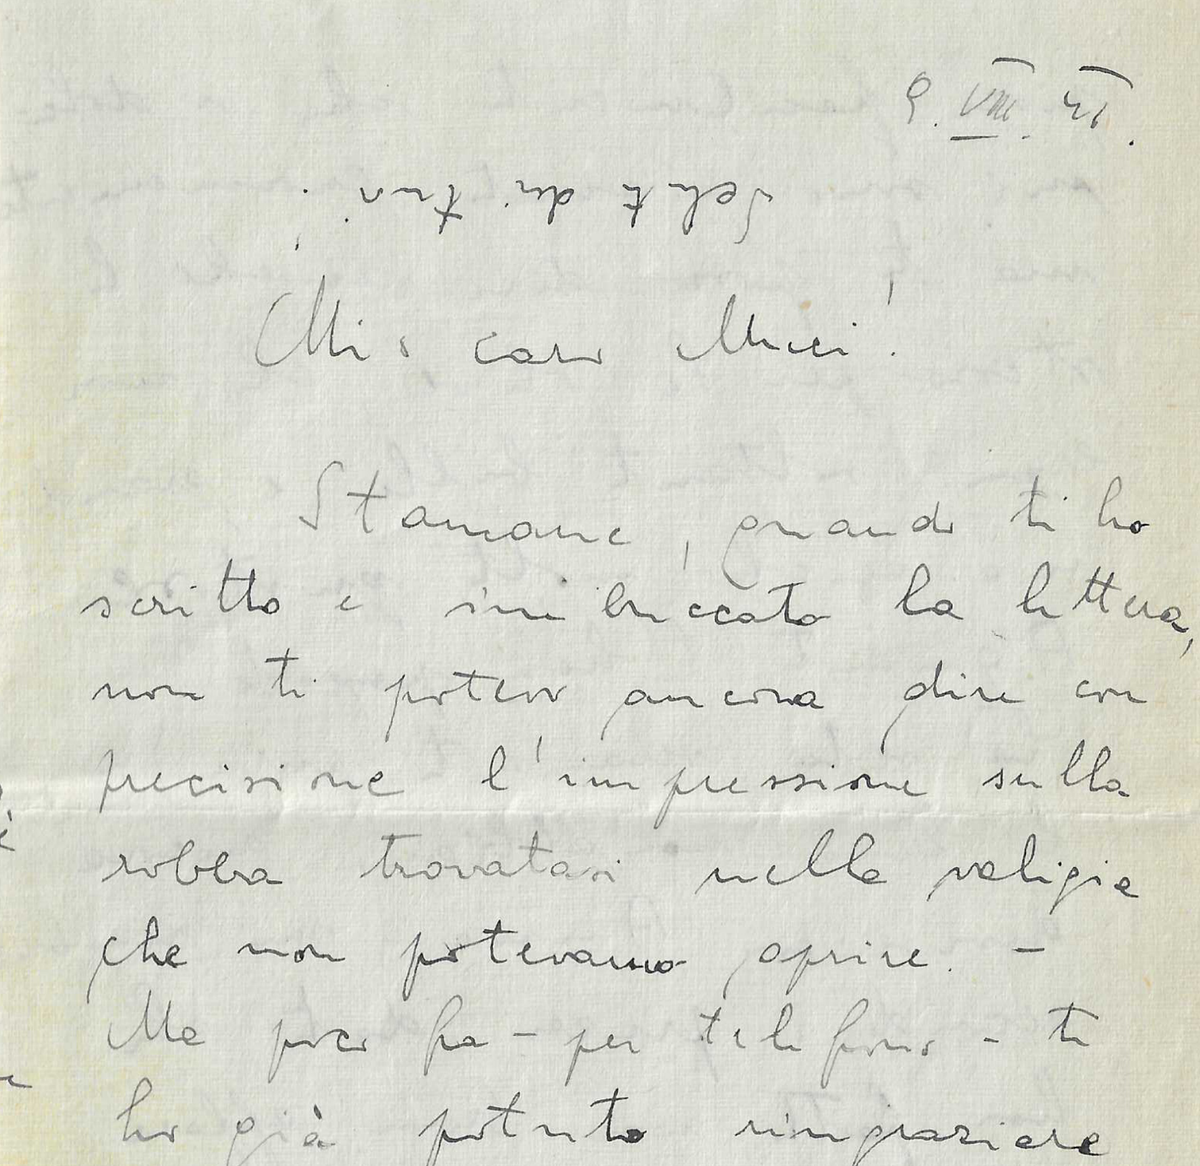 9. VIII.
Mio caro Muci!
Stamane, quando ti ho
scritto e imbuccato la lettera,
non ti potevo ancora dire con
precisione l'impressione sulla
robba trovatasi nella valigia
che non potevamo aprire. –
Ma poco fa – per telefono – ti
ho già potuto ringraziare